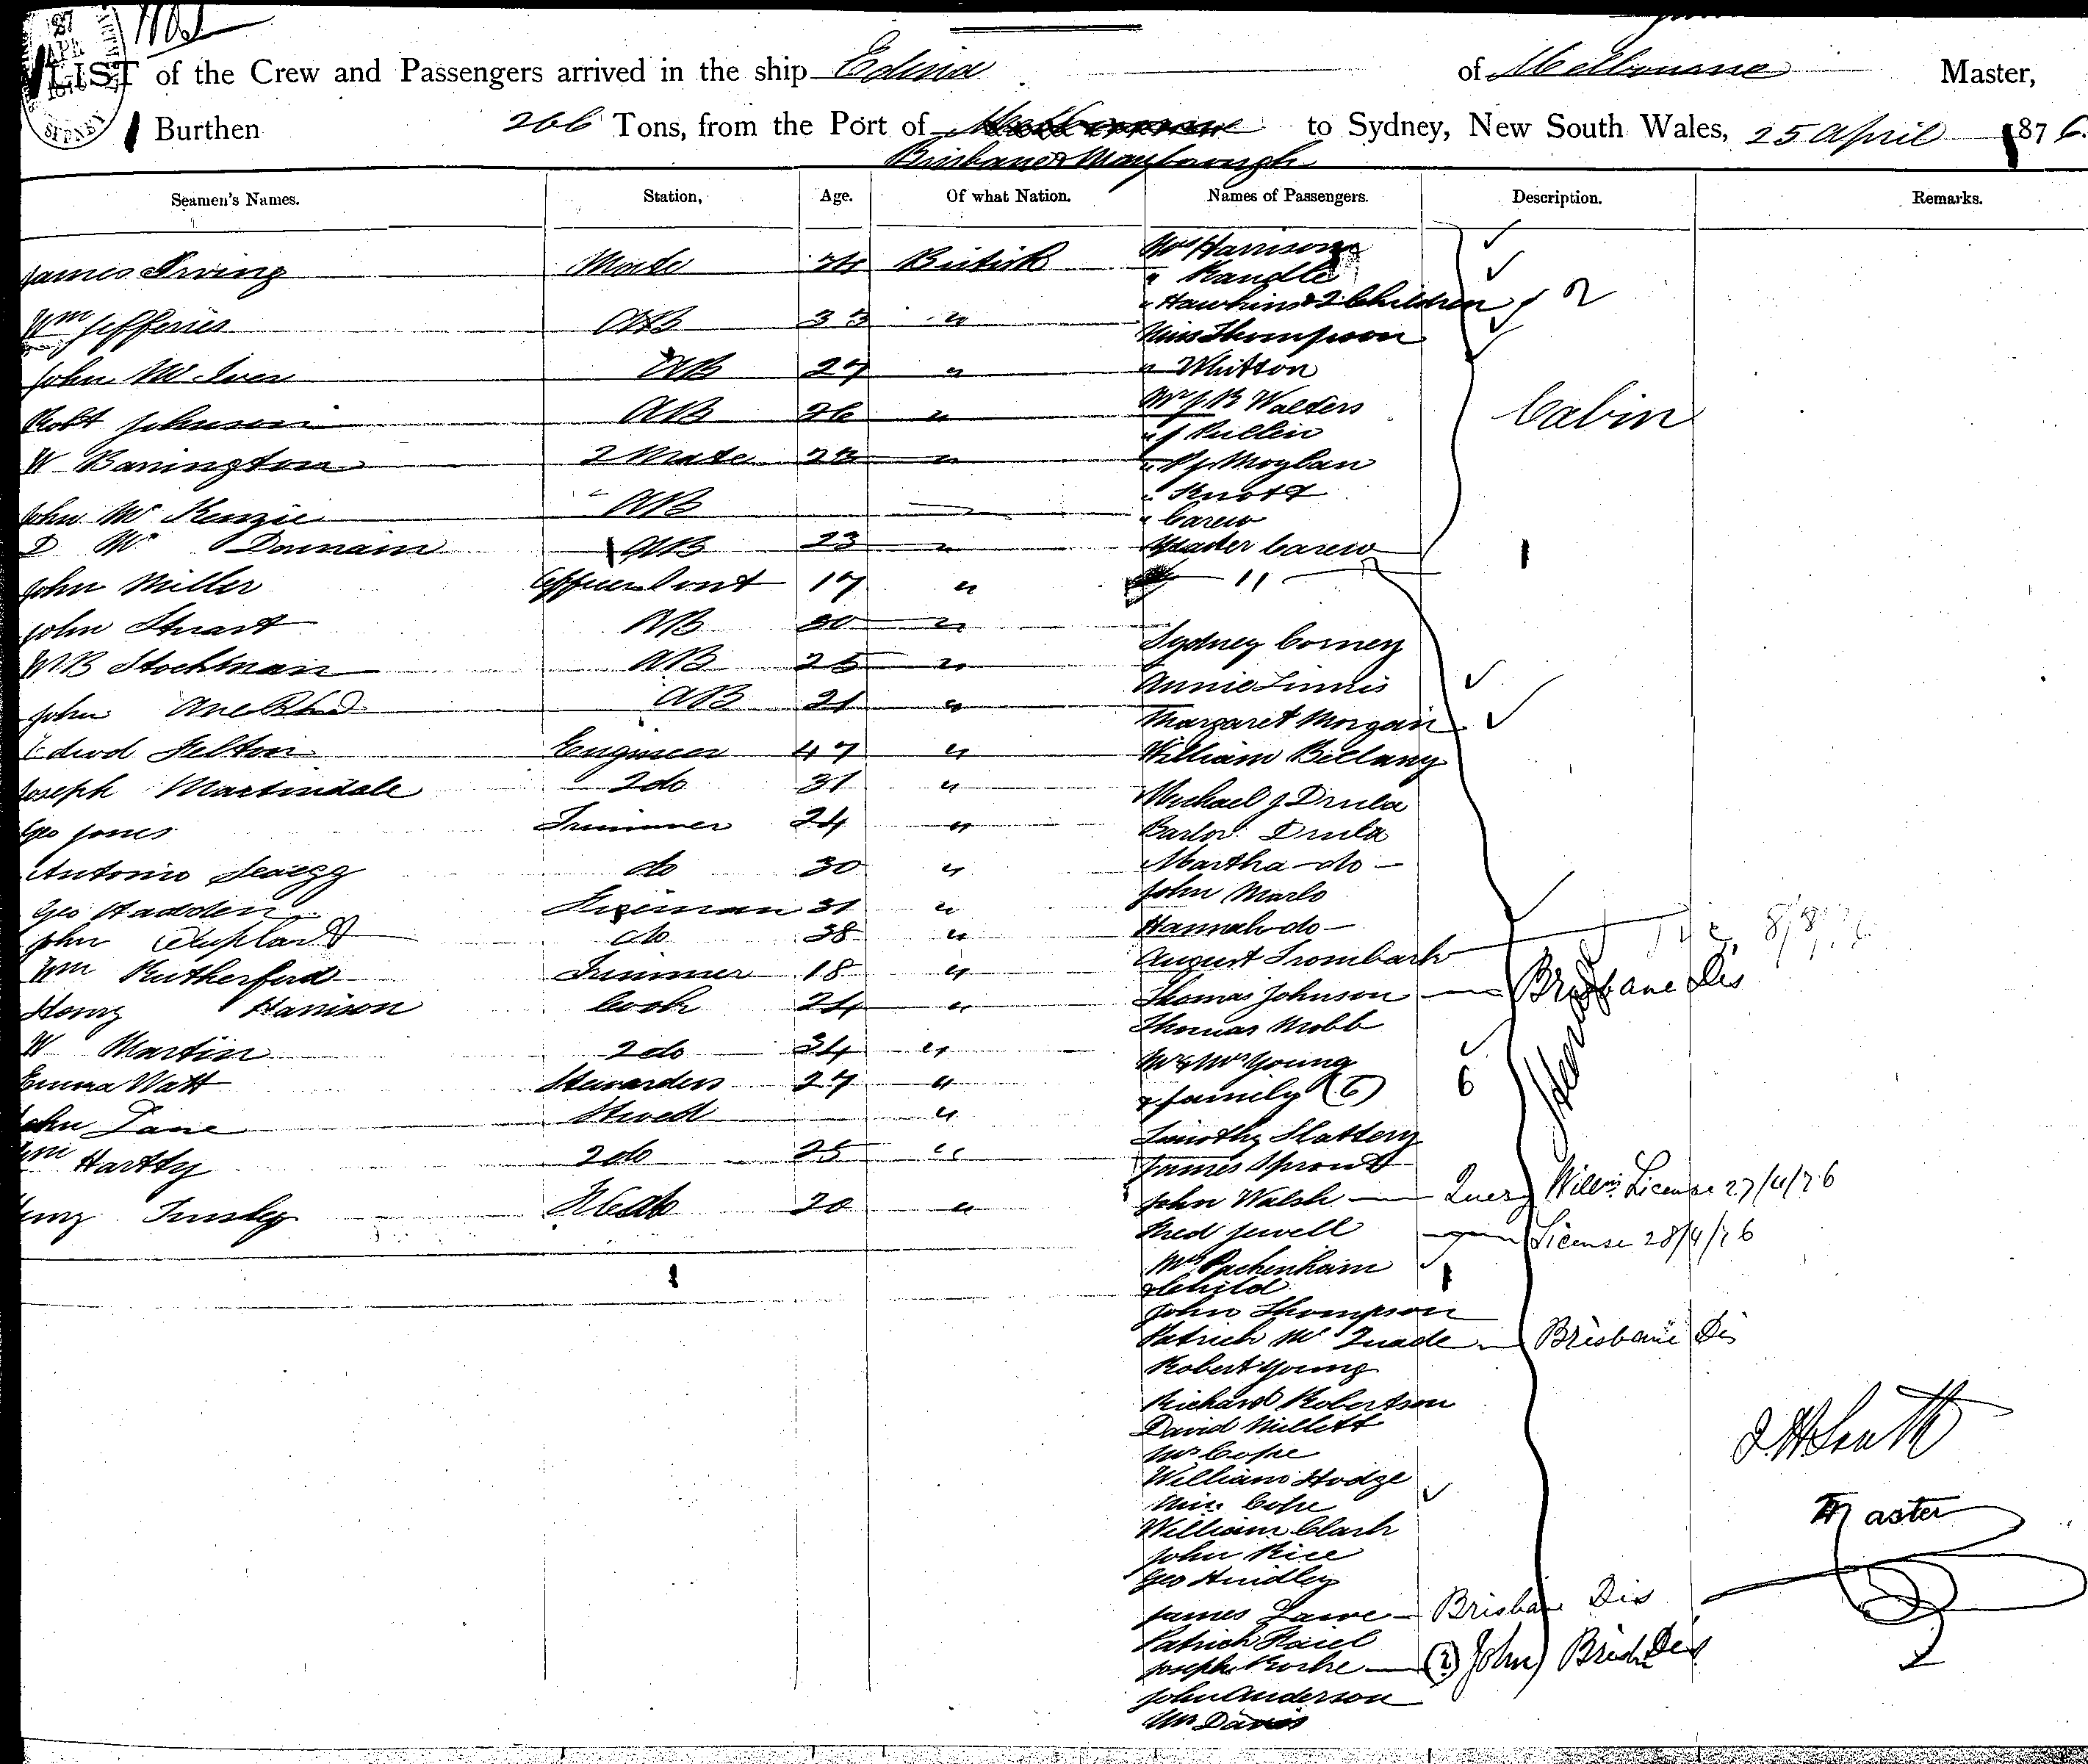 27
APR
SYDNEY
LIST of the Crew and Passengers arrived in the ship Edina of Melbourne Master,
Burthen 266 Tons, from the Port of Melbourne to Sydney, New South Wales, 25 April 1876.
Brisbane & Maryborough
Seamen's Names. Station, Age. Of what Nation. Names of Passengers. Description. Remarks.
James Irving Mate British
Wm Jefferies AB 33 "
John McIver AB 27 "
Robt Johnson AB 26 "
W Barrington 2 Mate 28 "
John McKenzie AB
D Mc AB 23 "
John Miller 17 "
John Stuart AB 30 "
W.B Stockman AB 25 "
John AB 21 "
Edwd Felton Engineer 47 "
Joseph Martindale 2 do 31 "
Geo Jones Trimmer 24 "
Antonio do 30 "
Geo Hadden Fireman 31 "
John do 38 "
Wm Rutherford Trimmer 18 "
Henry Harrison Cook 24 "
W Martin 2 do 34 "
Emma Watt Stewardess 27 "
John Lane Stwd "
Wm Hartly 2 do 25 "
20 "
Mrs Harrison
" Randle
" Hawkins & 2 Children / 2
Miss Thompson
" Whitton
Mr J B Walters
" J Pullen
" P J Moylan
" Knott
" Carew
Master Carew
Cabin
11
Sydney Corney
Annie Linnis
Margaret Morgan
William Bellany
Michael J Drula
Drula
Martha do
John Marlo
Hannah do
August Trombach
Thomas Johnson — Brisbane Dis
Thomas Mobb
Mr & Mrs Young
& family (6) 6
Timothy Slattery
James Sproul
John Walsh — Query Willm License 27/4/76
Fred Jewell — License 28/4/76
Mrs Packenham
& Child
John Thompson
Patrick McQuade — Brisbane Dis
Robert Young
Richard Robertson
David Millett
Mr Cope
William Hodge
Miss Cope
William Clark
John Rice
Geo Hindley
James Lawe — Brisbane Dis
Patrick
Joseph Rorke — (? John) Brisbne Dis
John Anderson
Mr Davis
Master